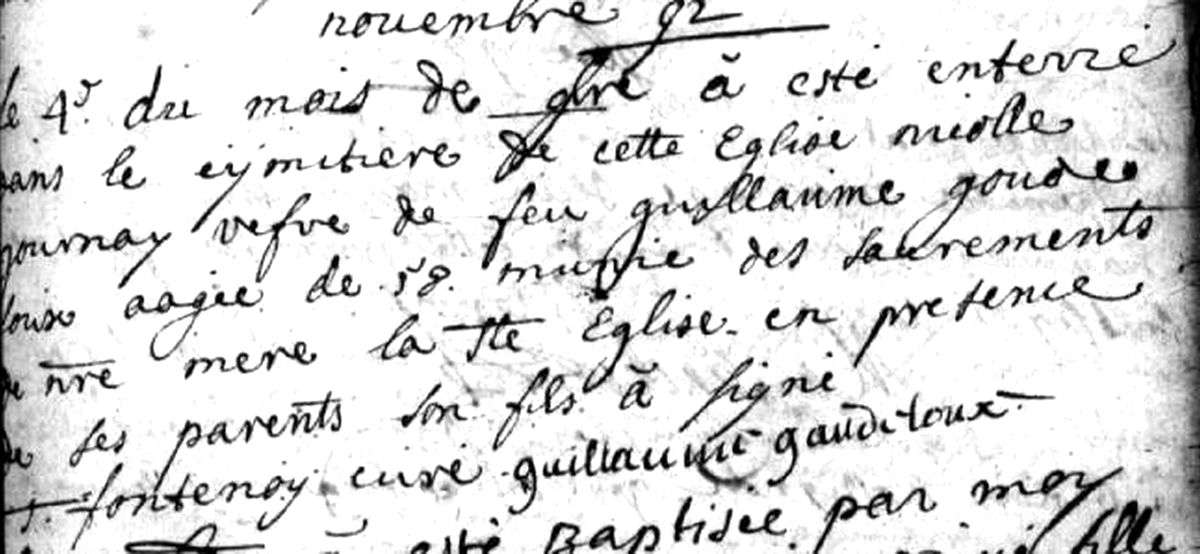 novembre 92
le 4e du mois de 9bre à esté enterré
dans le cymitiere de cette Eglise nicolle
gournay vefve de feu guillaume goude
loux aagée de 58. munie des sacrements
de nre mere la Ste Eglise. en presence
de ses parents son fils à signé
fontenoy curé guillaume gaudeloux
esté Baptisée par moy
fille